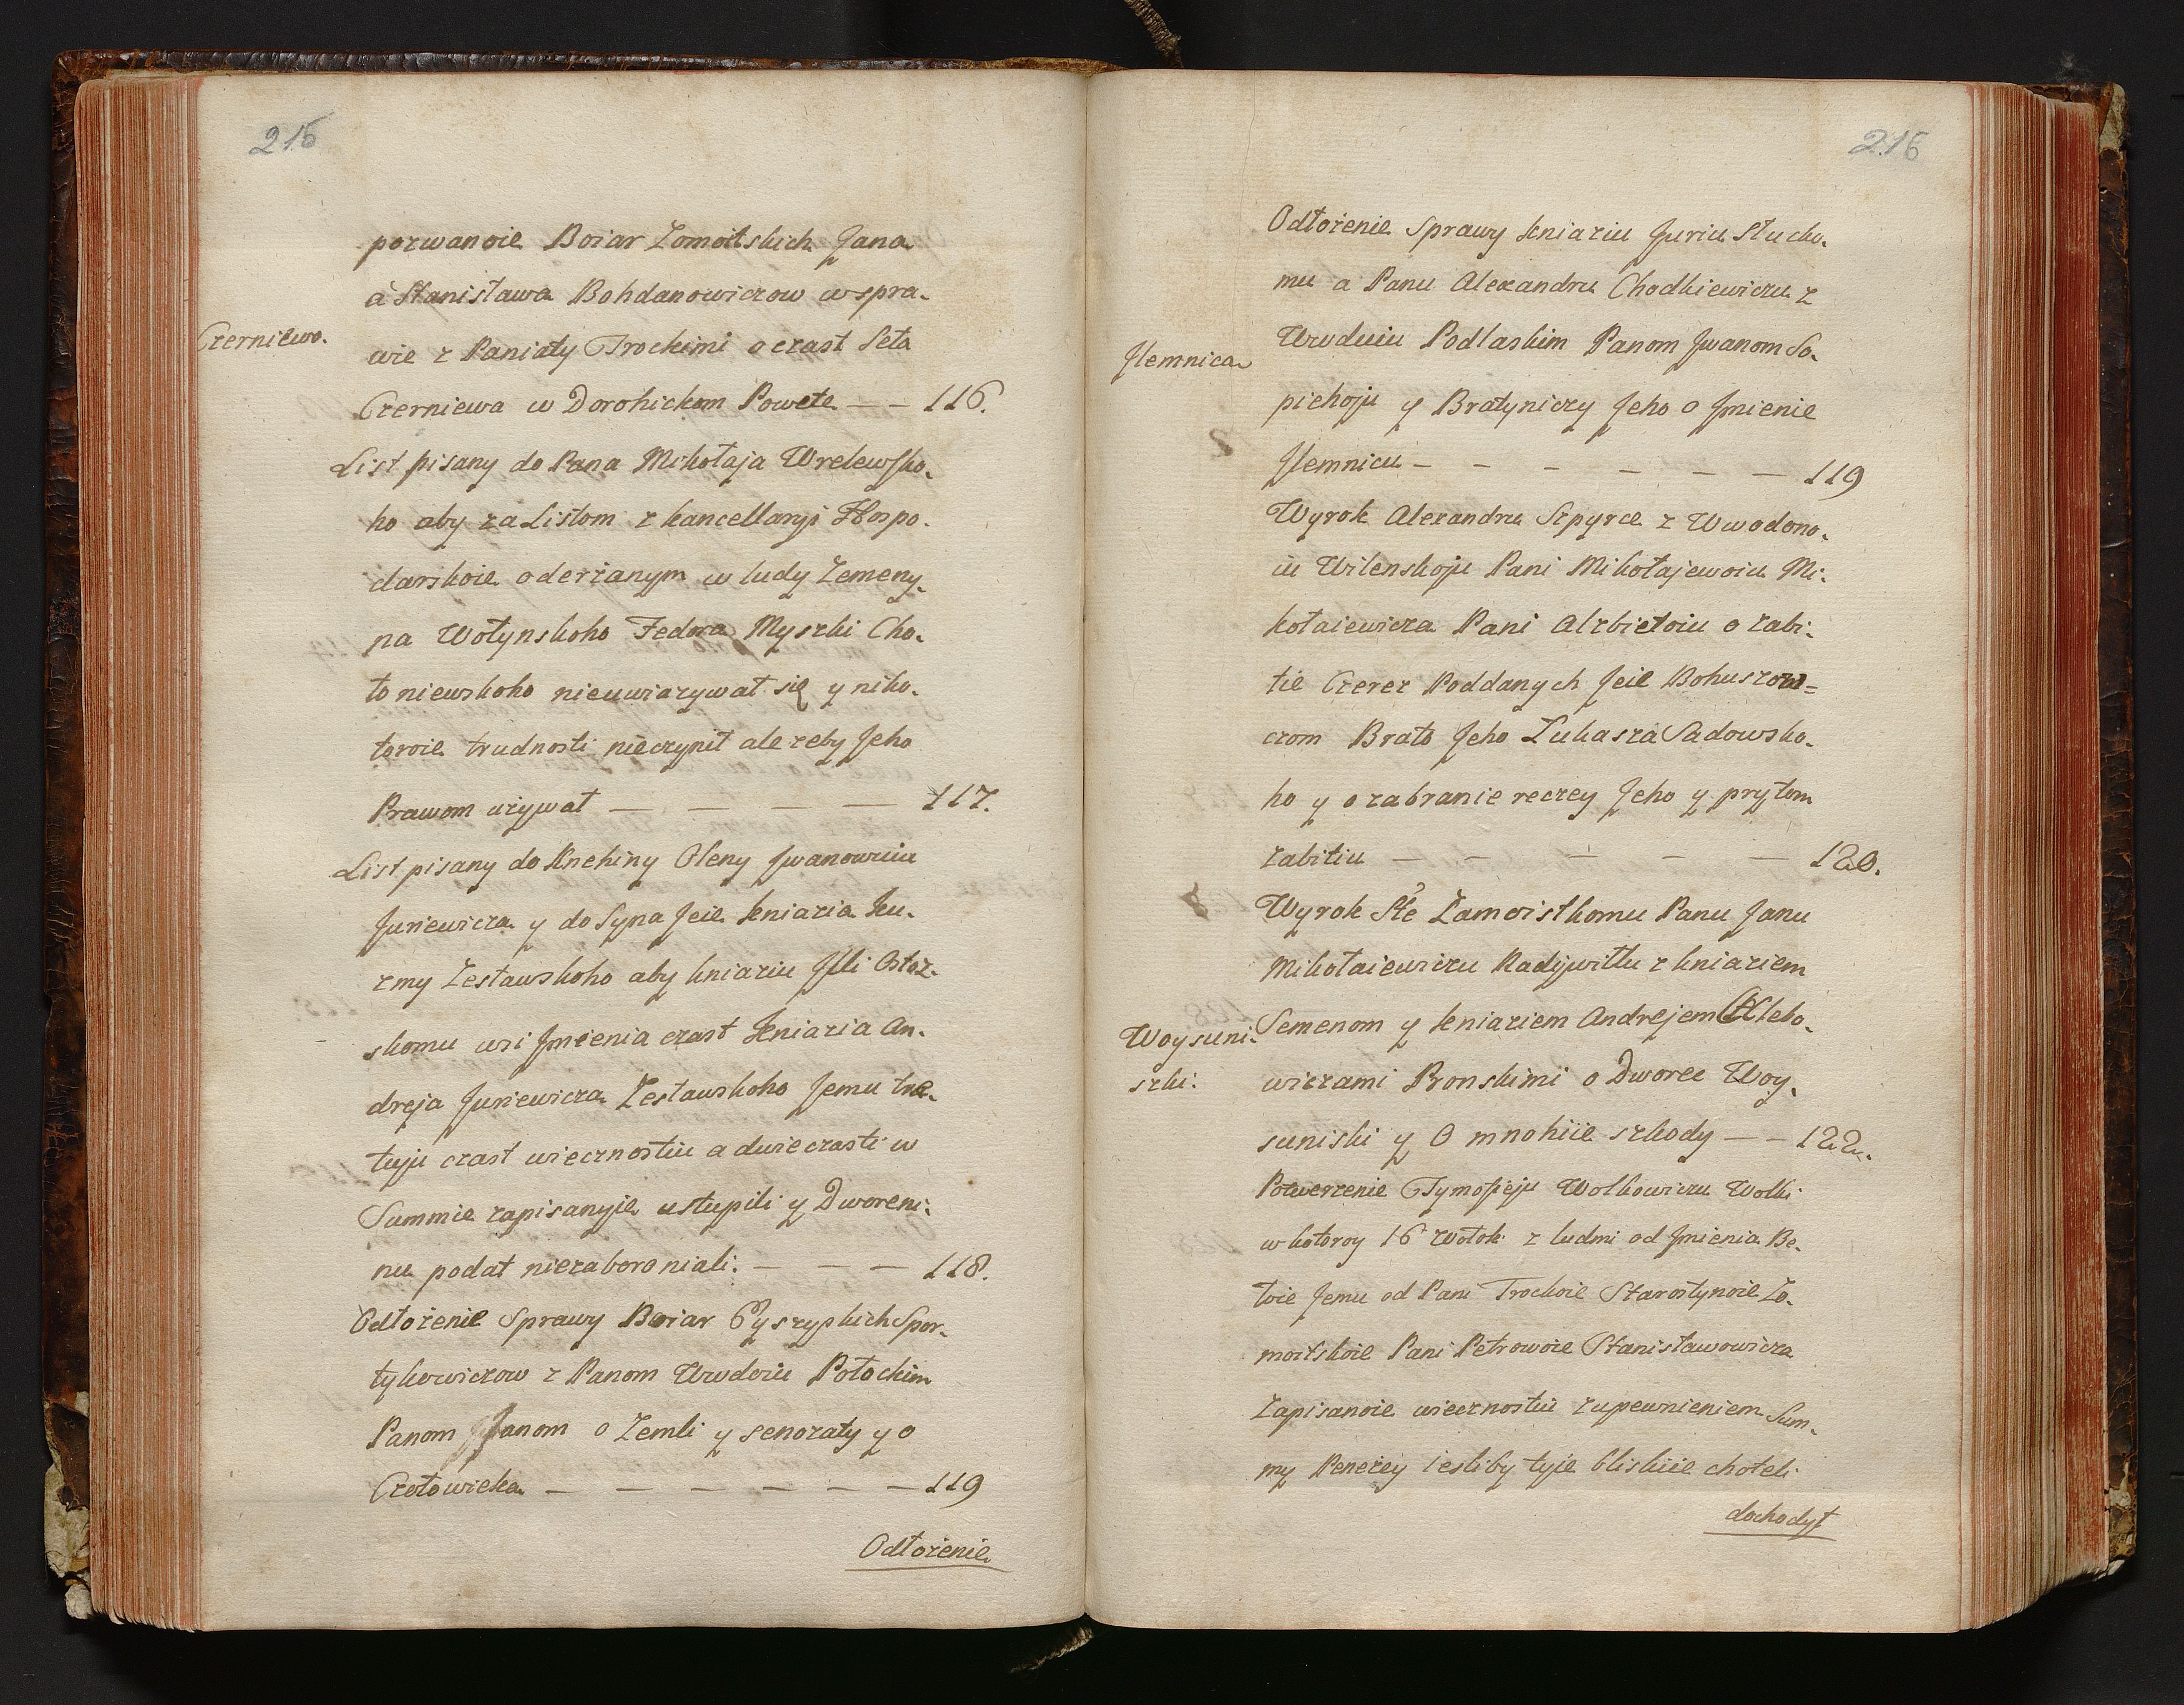 215
pozwanoie Boiar Zomoitskich Jana
a Stanisława Bohdanowiczow w spra-
Czerniewo.
wie z Paniaty Trockimi o czast Seła
Czerniewa w Dorohickom Powete — — 116.
List pisany do Pana Mikołaja
ho aby za Listom z kancellaryi Hospo-
darskoie oderżanym w ludy Zemeny-
na Wołynskoho Fedora Myszki Cho-
łoniewskoho nieuwiazywał się y niko-
toroie trudnosti nieczynił ale zeby Jeho
Prawom używał — — — — 117.
List pisany do Knehiny Oleny Iwanowuiu
Juriewicza y do Syna Jeie kniazia Ku-
zmy Zesławskoho aby kniaziu Illi Ostoz-
skomu wsi Jmienia czast kniazia An-
dreja Juriewicza Zesławskoho Jemu tre-
tuju czast wiecznostiu a dwie czasti w
Summie zapisanyje ustupili y Dworeni-
nu podat niezaboroniali. — — — 118.
Odłożenie Sprawy Boiar Spor-
tykowiczow z Panom Wwodoiu Połockim
Panom Janom o Zemli y senozaty y o
Człowieka — — — — — — 119
Odłożenie
216
Odłożenie Sprawy kniaziu Juriu Słucko-
mu a Panu Alexandru Chodkiewiczu z
Wwodoiu Podlaskim Panom Iwanom So-
Ilemnica
piehoju y Bratyniczy Jeho o Jmienie
Ilemnicu — — — — — — 119
Wyrok Alexandru Szpyrce z Wwodono-
iu Wilenskoju Pani Mikołajewoiu Mi-
kołaiewicza Pani Alzbietoiu o zabi-
tie Czerez Poddanych Jeie Bohuszow-
czom Brata Jeho Łukasza Sadowsko-
ho y o zabranie reczey Jeho y prytom
zabitiu — — — — — 120.
Wyrok Stẽ Zamoistkomu Panu Janu
Mikołaiewiczu Radijwiłłu z kniaziem
Semenom y kniaziem Andrejem Hlebo-
Woysuni-
szki.
wiczami Pronskimi o Dworec Woy-
suniski y O mnohiie szkody — — 122.
Potwerzenie Tymofieju Wołkowiczu Wolki
w kotoroy 16 wołok z ludmi od Jmienia Be-
łoie Jemu od Pani Trockoie Starostynoie Zo-
moitskoie Pani Petrowoie Stanisławowicza
Zapisanoie wiecznostiu zupewnieniem Sum-
my Penezey iesliby tyje bliskiie choteli
dochodyt